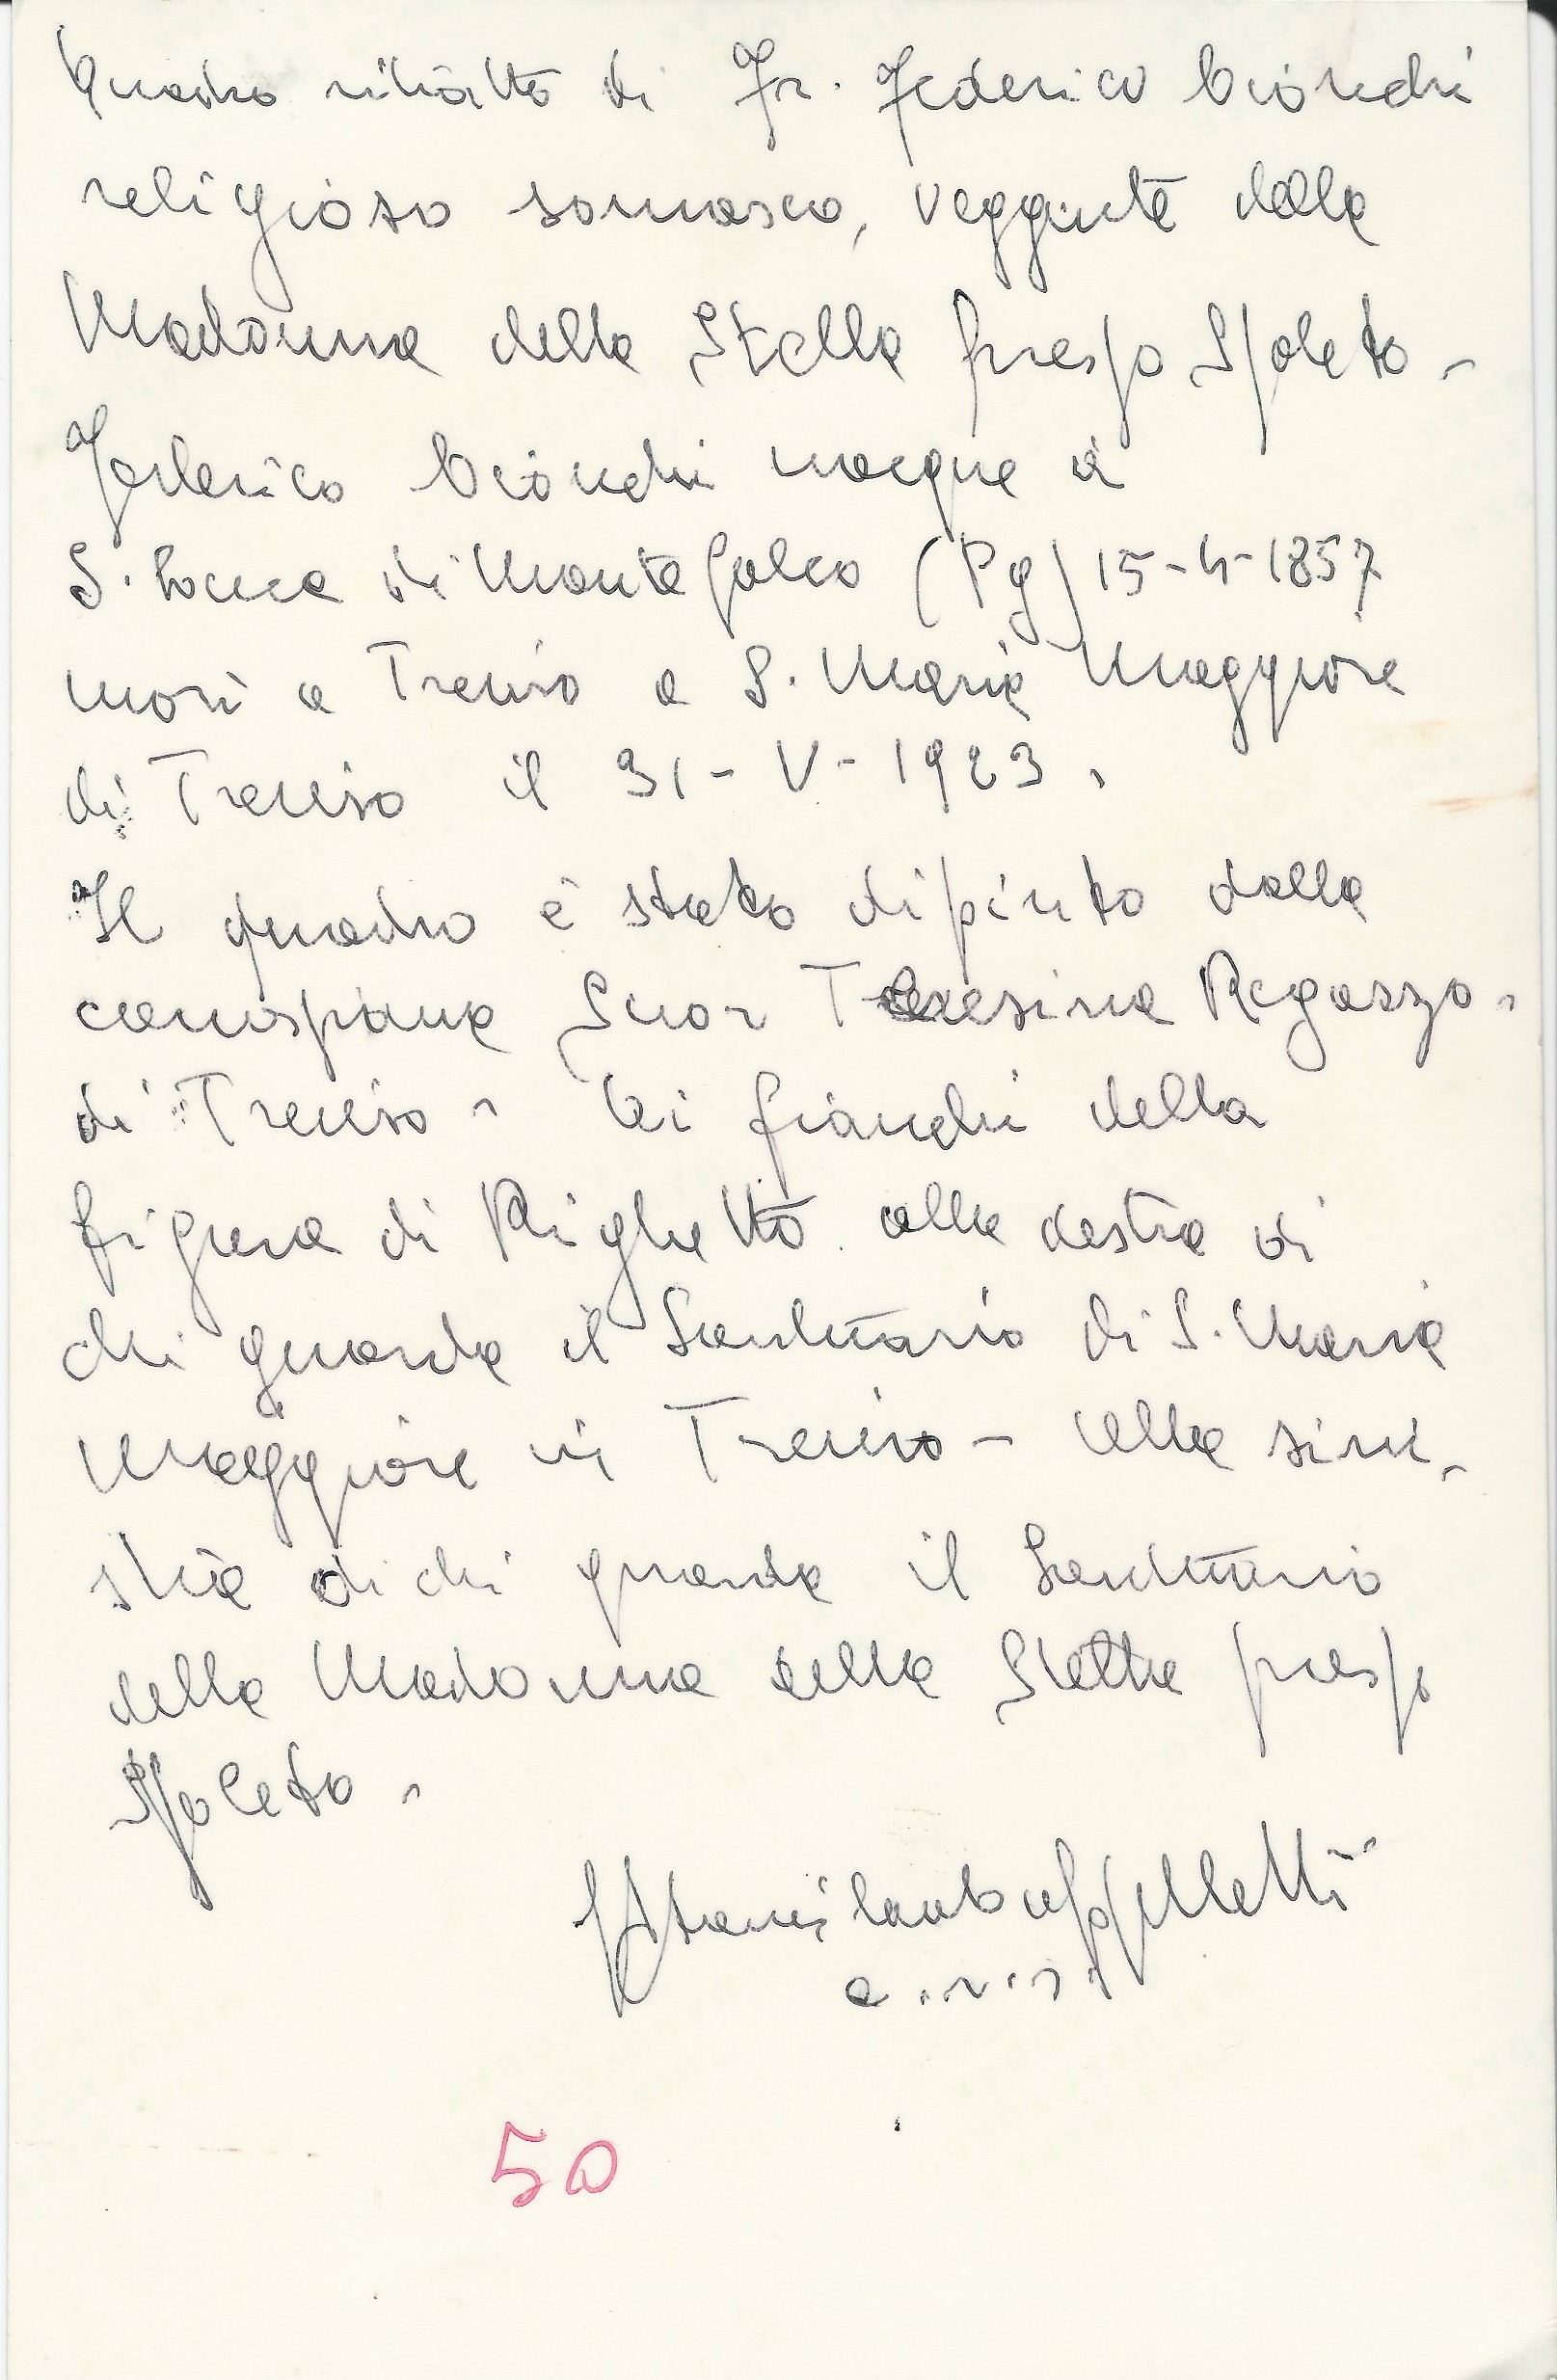 Quadro ritratto di Fr. Federico Cionchi
religioso somasco, veggente della
Madonna della Stella presso Spoleto -
Federico Cionchi nacque a
S. Luca di Montefalco (Pg) 15-4-1857
morì a Treviso a S. Maria Maggiore
di Treviso il 31-V-1923.
Il quadro è stato dipinto dalla
canossiana Suor Teresina Regazzo -
di Treviso - Ai fianchi della
figura di Righetto alla destra di
chi guarda il Santuario di S. Maria
Maggiore in Treviso - Alla sini-
stra di chi guarda il Santuario
della Madonna della Stella presso
Spoleto -
Stanislao Cappelletti
c.r.s.
50